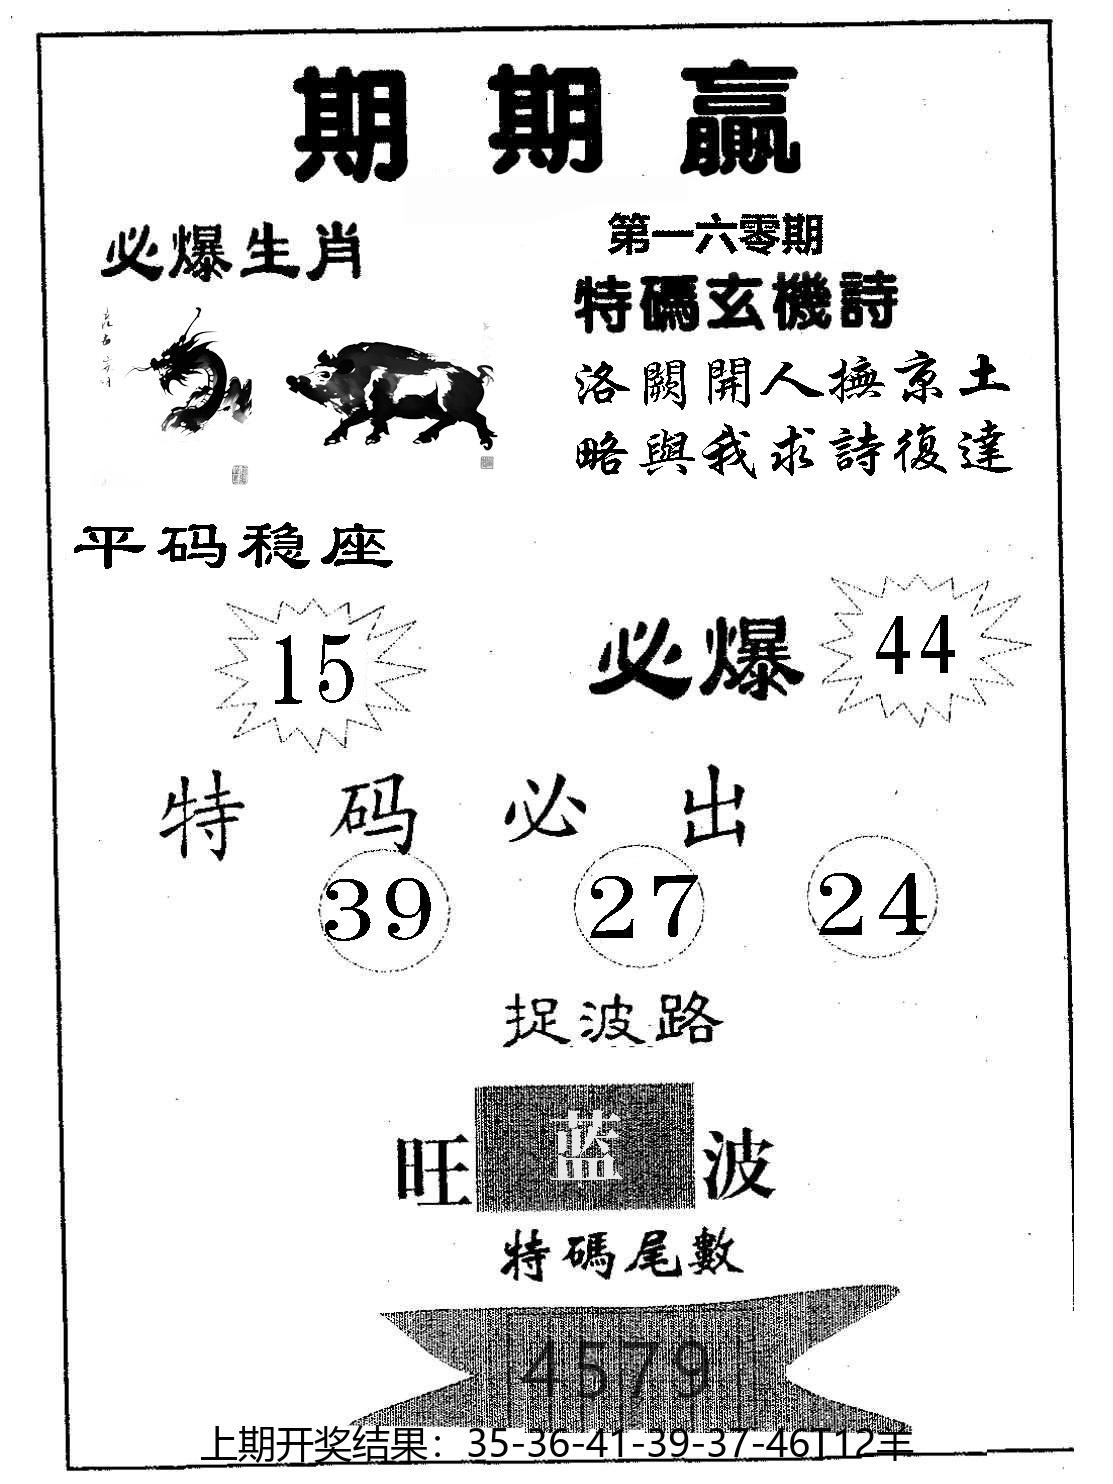 期期贏
必爆生肖
第一六零期
特碼玄機詩
洛闕開人撫京土
略與我求詩復達
平码稳座
15
必爆
44
特码必出
39 27 24
捉波路
旺蓝波
特碼尾數
4579
上期开奖结果：35-36-41-39-37-46T12羊